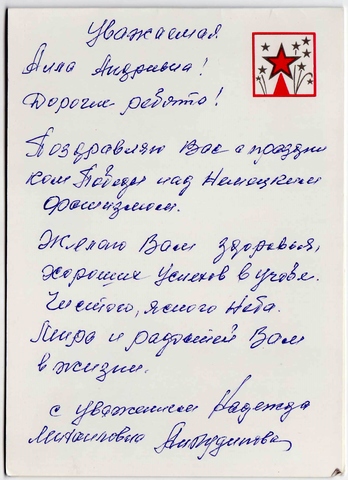 Уважаемая
Алла Андривна!
Дорогие ребята!
Поздравляю Вас с праздни
ком Победы над Немецким
фашизмом.
Желаю Вам здоровья,
хороших успехов в учёбе.
Чистого, ясного Неба.
Мира и радостей Вам
в жизни.
с уважением Надежда
Михайловна